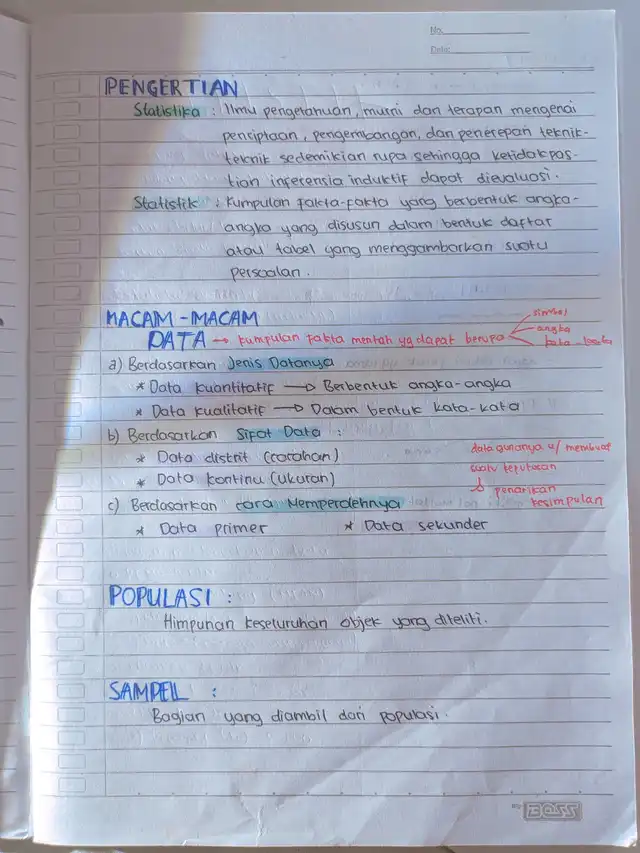 No.
Date:
PENGERTIAN
Statistika : Ilmu pengetahuan, murni dan terapan mengenai
penciptaan, pengembangan, dan penerepan teknik-
teknik sedemikian rupa sehingga ketidakpas-
tian inferensia induktif dapat dievaluasi.
Statistik : Kumpulan fakta-fakta yang berbentuk angka-
angka yang disusun dalam bentuk daftar
atau tabel yang menggambarkan suatu
persoalan.
MACAM-MACAM
DATA → kumpulan fakta mentah yg dapat berupa
simbol
angka
kata-kata
a) Berdasarkan Jenis Datanya
* Data kuantitatif → Berbentuk angka-angka
* Data kualitatif → Dalam bentuk kata-kata
b) Berdasarkan Sifat Data :
* Data distrit (cacahan)
* Data kontinu (ukuran)
data gunanya u/ membuat
suatu keputusan
↓ penarikan
kesimpulan
c) Berdasarkan cara Memperolehnya
* Data primer * Data sekunder
POPULASI :
Himpunan keseluruhan objek yang diteliti.
SAMPEL :
Bagian yang diambil dari populasi.
BOSS